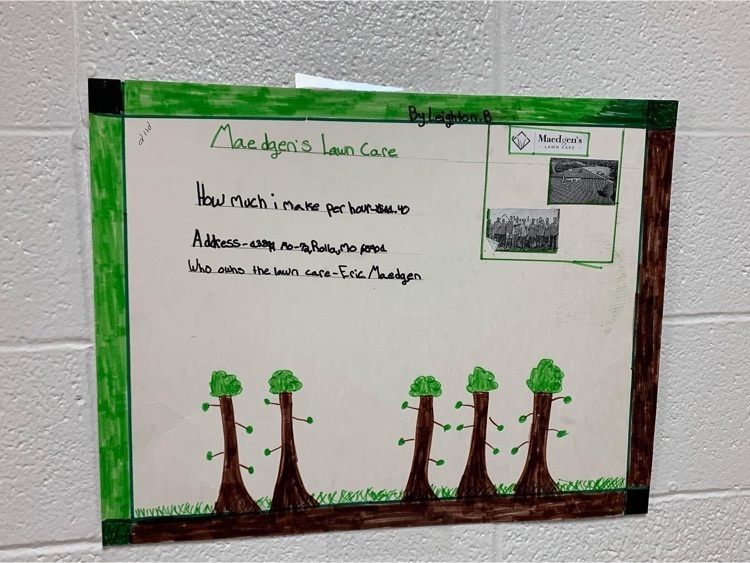 By Leighton.B
Maedgen's Lawn Care
Maedgen's
LAWN CARE
How much i make per hour-$14.40
Address- MO-72, Rolla, MO
Who owns the lawn care-Eric Maedgen